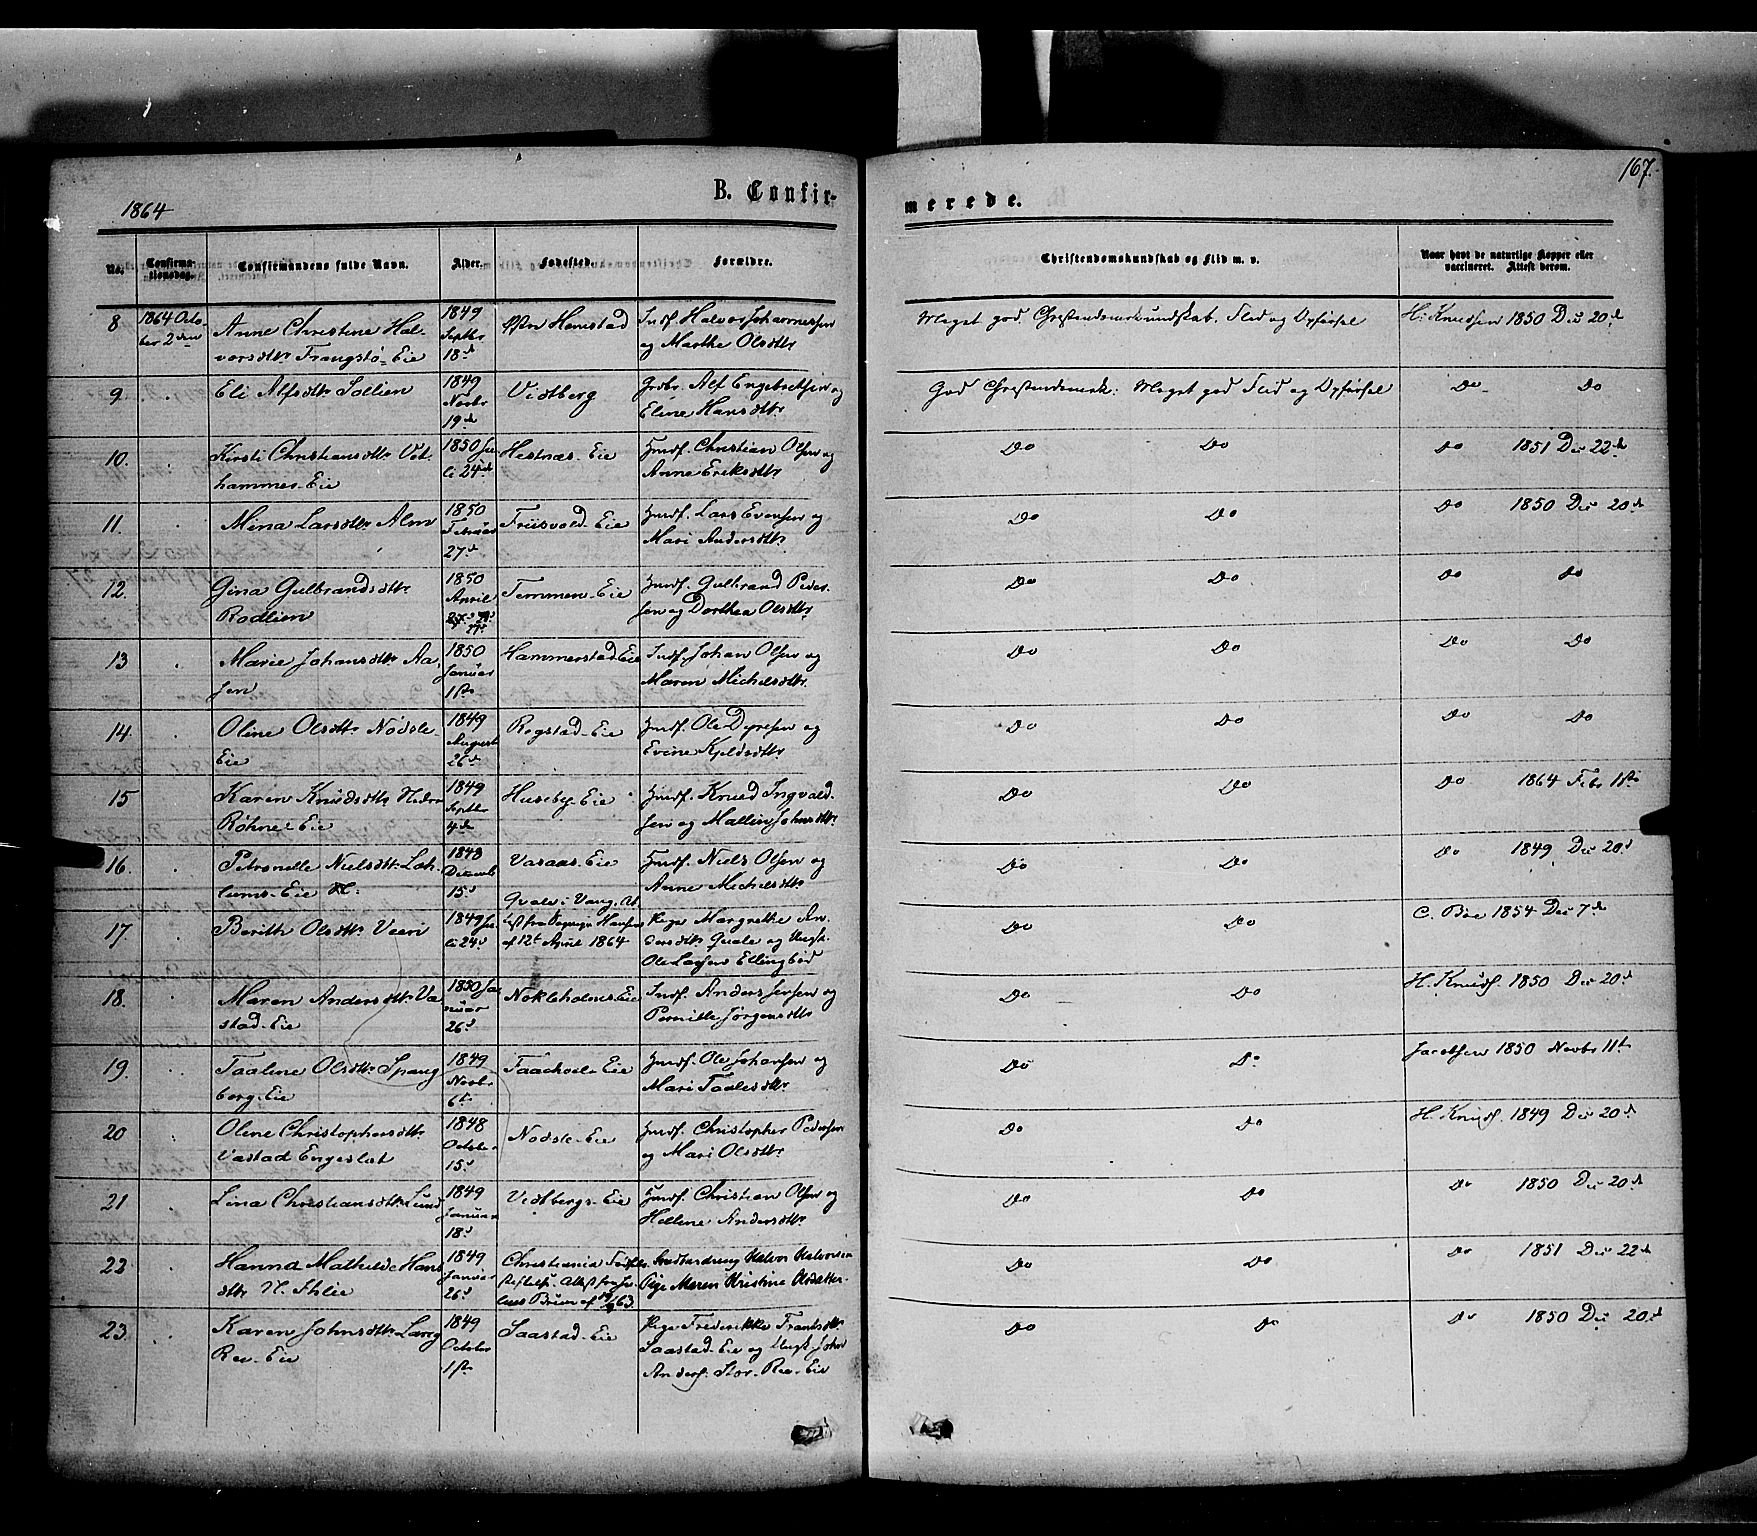 167.
1864
B. Confir-
merede.
No.
Confirma-
tionsdag.
Confirmandens fulde Navn.
Alder.
Fødested.
Forældre.
Christendomskundskab og Flid m. v.
Naar havt de naturlige Kopper eller
vaccineret. Attest derom.
8
1864 Octo-
ber 2den
Anne Christine Hal-
vorsdtr Trangstø-Eie
1849
Septbr
18de
Østr Hemstad
Indf. Halvor Johannessen
og Marthe Olsdtr
Meget god Christendomskundskab. Flid og Opførsel
H. Knudsen 1850 Dec 20de
9
Eli Alfsdtr Sollien
1849
Novbr
19de
Vidberg
Grdbr. Alf Engebretsen og
Eline Hansdtr
God Christendomsk: Meget god Flid og Opførsel
Do Do
10.
Kirsti Christiansdtr Vet-
hammer-Eie
1850 Ju-
li 24de
Hestnæs-Eie
Huusf. Christian Olsen og
Anne Eriksdtr
Do Do
Do 1851 Dec 22de
11.
Mina Larsdtr Alm
1850
Februar
27d
Friisvold-Eie
Huusf. Lars Evensen og
Mari Andersdtr
Do Do
Do 1850 Dec 20de
12.
Gina Gulbrandsdtr
Rodlien
1850
April
Temmen-Eie
Huusf. Gulbrand Peder-
sen og Dorthea Olsdtr
Do Do
Do Do
13
Marie Johansdtr Aa-
sen
1850
Januar
1ste
Hammerstad Eie
Indf. Johan Olsen og
Maren Michelsdtr.
Do Do
Do Do
14.
Oline Olsdtr Nødsle
Eie
1849
August
26d
Rogstad-Eie
Huusf. Ole Dyresen og
Evine Kjeldsdtr
Do Do
Do Do
15
Karen Knudsdtr Nedre
Røhne-Eie
1849
Septbr
4de
Huseby-Eie
Huusf. Knud Ingvald-
sen og Mallin Johnsdtr
Do Do
Do 1864 Febr 1ste
16.
Petronelle Nielsdtr Loh-
lums-Eie
1848
Decemb
15d
Vasaas-Eie
Huusf. Niels Olsen og
Anne Michelsdtr
Do Do
Do 1849 Dec 20d
17.
Berith Olsdtr Veeri
1849 Ju-
li 24d
Quale i Vang.
af 12t April 1864
Pige Margrethe An-
dersdtr Quale og Ungk.
Ole Larsen Ellingbøe
Do Do
C. Boe 1854 Dec 7de
18.
Maren Andersdtr Va-
stad-Eie
1850 Ja-
nuar
26d
Nokleholms Eie
Indf. Anders Jensen og
Pernille Jørgensdtr
Do Do
H. Knuds. 1850 Dec 20de
19.
Taaline Olsdtr Spang
borg-Eie
1849
Novbr
6t
Taachoel-Eie
Huusf. Ole Johansen og
Mari Taalesdtr
Do Do
Jacobsen 1850 Novbr 11te
20
Olene Christophersdtr
Vastad Engeslet
1848
October
15d
Nodsle-Eie
Huusf. Christopher Pedersen
og Mari Olsdtr.
Do Do
H. Knuds. 1849 Dec 20de
21
Lina Christiansdtr Lund
1849
Januar
18d
Vidbergs-Eie
Huusf. Christian Olsen og
Hellene Andersdtr
Do Do
Do 1850 Dec 20de
22
Hanna Mathilde Hans
dtr N. Ihlie
1849
Januar
26d
Christiania Fødsels
stiftelse. Attest fra Ju-
lius Bruun af 19/9 63.
Halvor Halvorsen
Pige Maren Kristine Olsdatter
Do Do
Do 1851 Dec 22de
23.
Karen Johnsdtr Lang
Ree-Eie
1849
October
1ste
Saastad-Eie
Pige Frederikke Frantsdtr
Saastad-Eie og Ungk. John
Anders. Stor-Ree-Eie
Do Do
Do 1850 Dec 20de